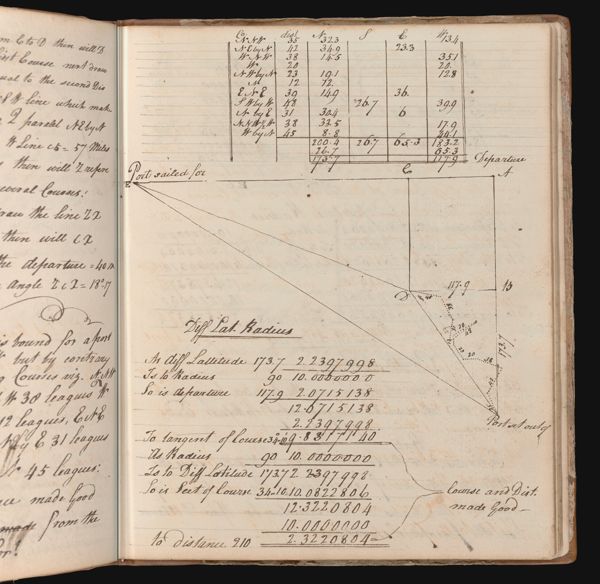 m C to D then will D
first Course next draw
ual to the second Dis
W Line which make
D parallel NEbyN
W Line c6 = 57 Miles
then will Z repre
everal Courses:
draw the line ZX
then will CX
the departure = 40 m
angle ZcX = 18°.17
is bound for a port
but by contrary
Courses viz. NNW
W 38 leagues W
12 leagues, ENE
N by E 31 leagues
45 leagues:
ce made Good
made from the
Co dist N S E W
NNW 35 32.3 13.4
NEbyN 42 34.9 23.3
WNW 38 14.5 35.1
W 20 20.
NWbyN 23 19.1 12.8
N 12 12.
ENE 39 14.9 36.
SWbyW 48 26.7 39.9
NbyE 31 30.4 6
38 33.5 17.9
WbyN 45 8.8 44.1
200.4 26.7 65.3 183.2
26.7 65.3
173.7 117.9
Departure
Port sailed for
E C A
117.9 B
D
173.7
Port set out of
Diff Lat. Radius
As diff Lattitude 173.7 2.2397998
Is to Radius 90 10.0000000
So is departure 117.9 2.0715138
12.0715138
2.2397998
To tangent of Course 34.10 9.8317140
As Radius 90 10.0000000
Is to Diff Latitude 173.7 2.2397998
So is Sect of Course 34.10 10.0822806
12.3220804
10.0000000
to distance 210 2.3220804
Course and Dist.
made Good